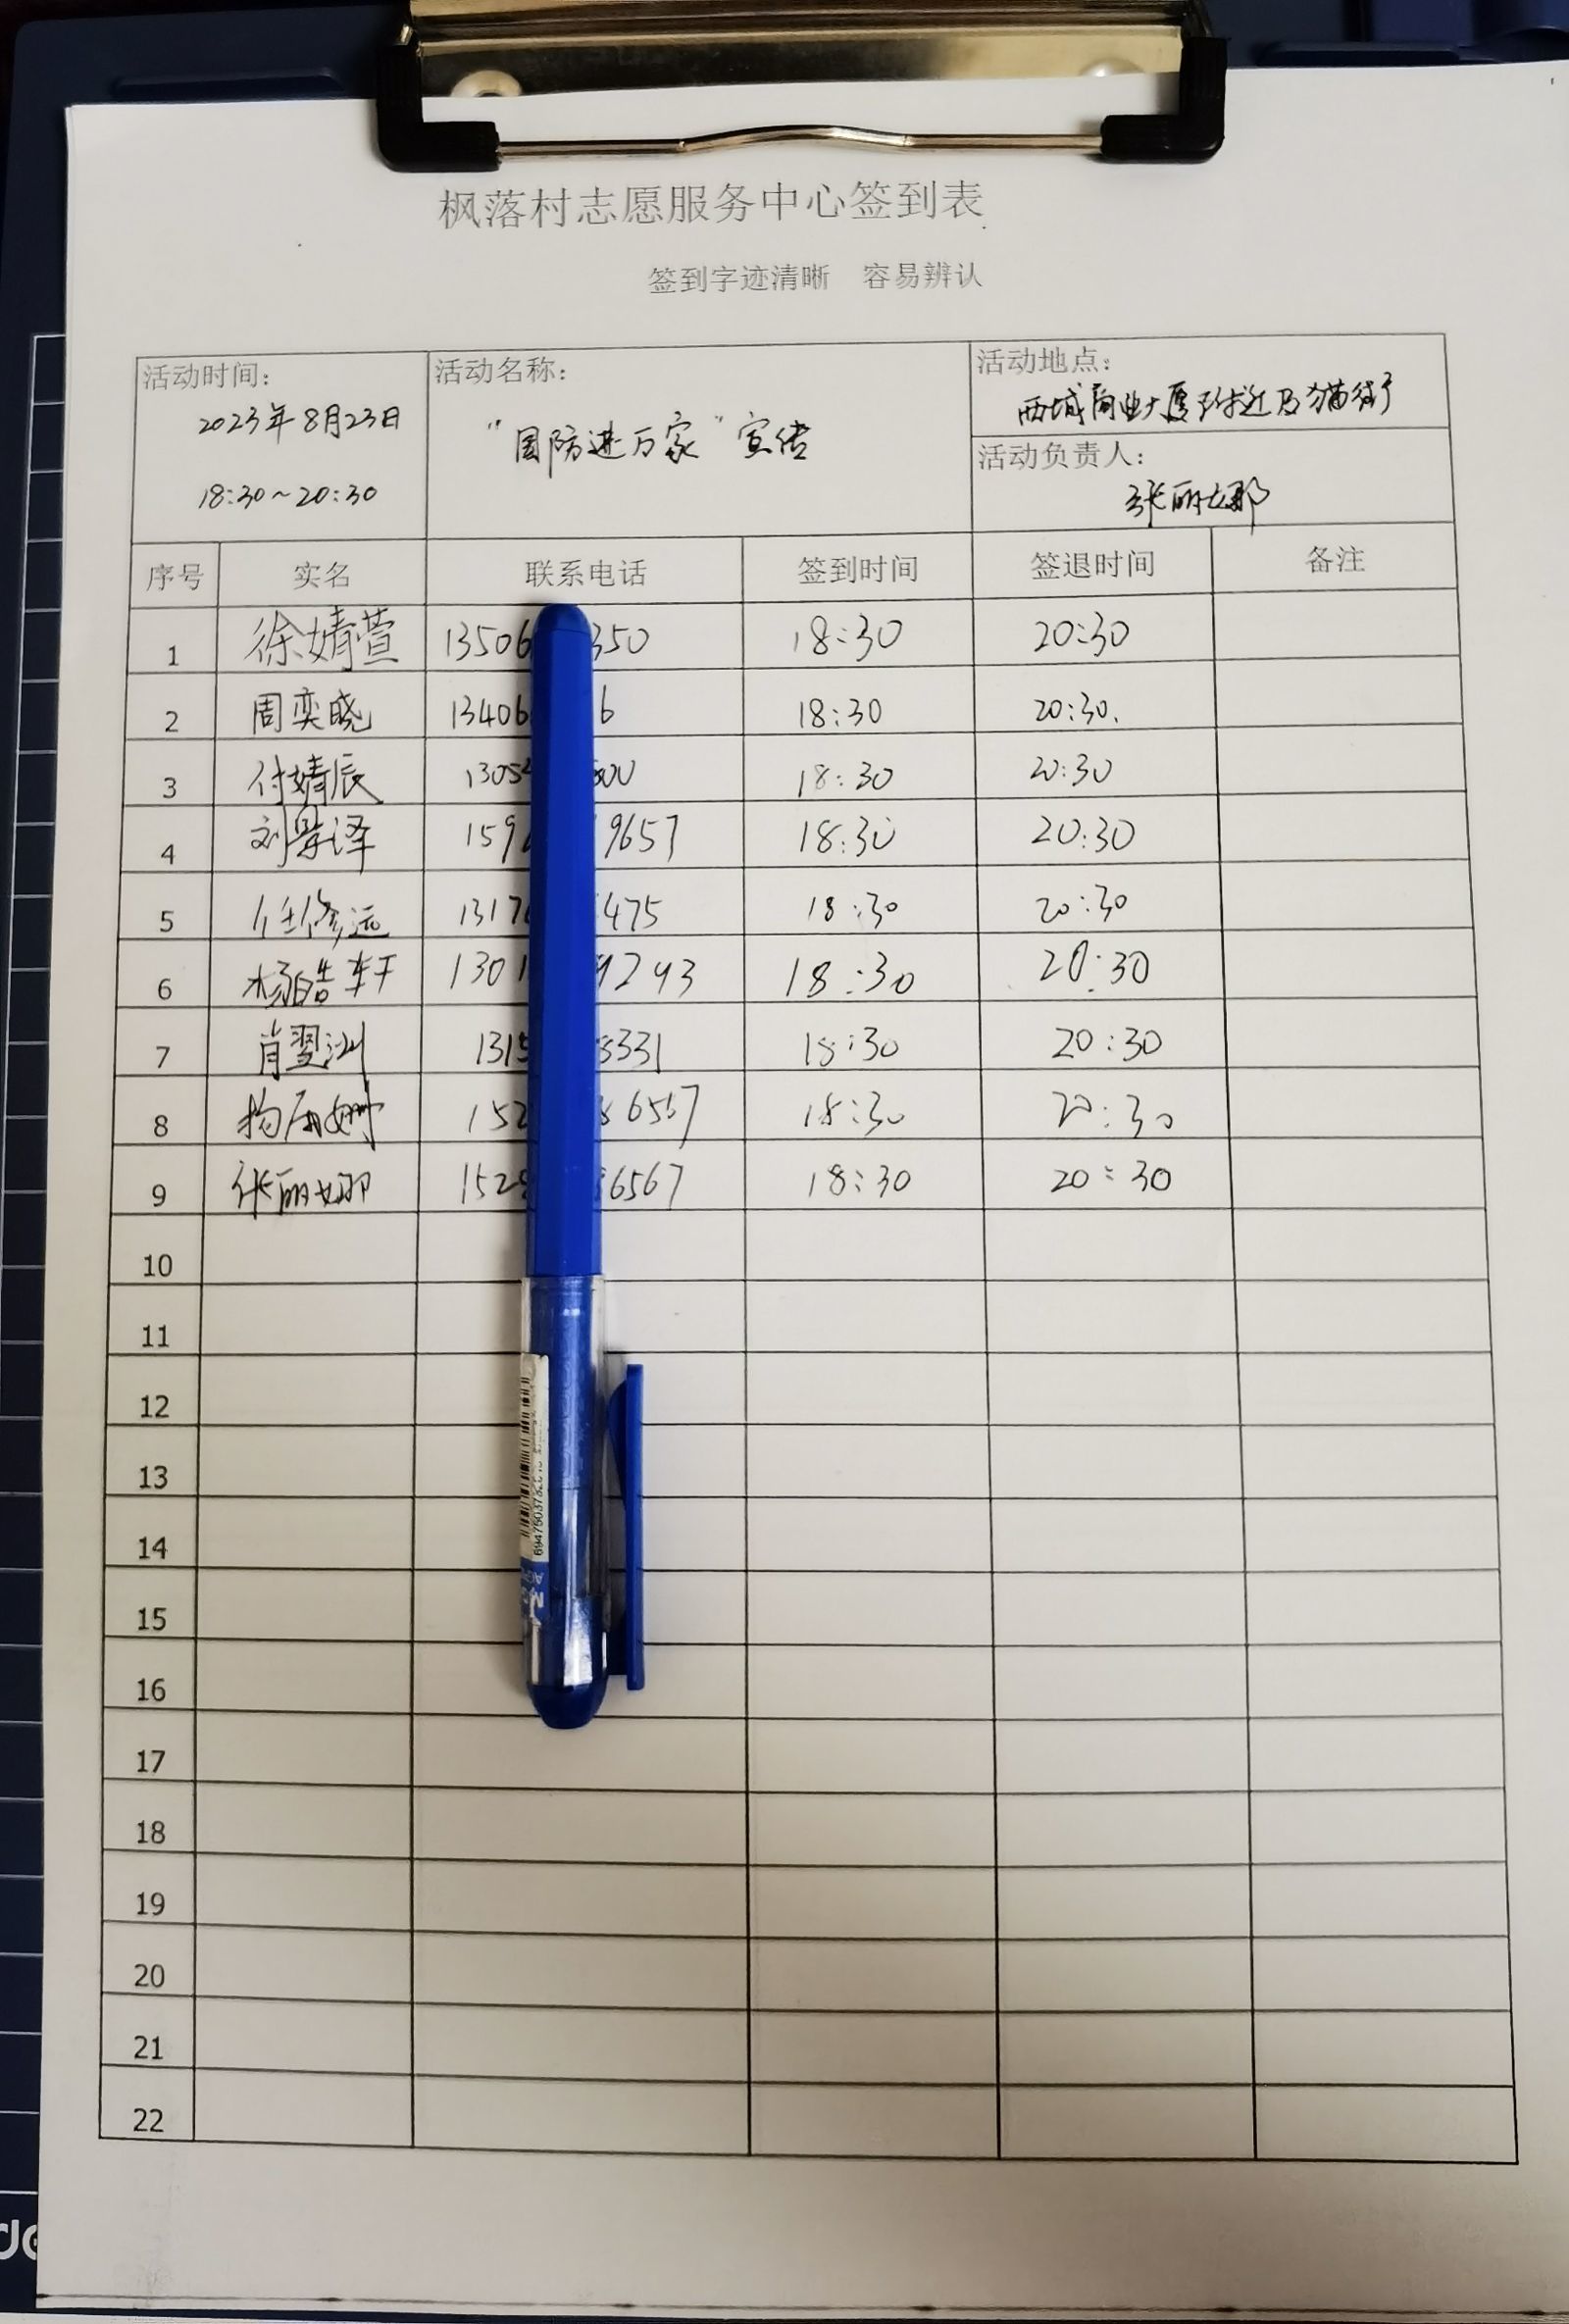 枫落村志愿服务中心签到表
签到字迹清晰 容易辨认
活动时间：
2023年8月23日
18:30~20:30
活动名称：
“国防进万家”宣传
活动地点：
西城商业大厦附近及猫街
活动负责人：
张丽娜
序号 实名 联系电话 签到时间 签退时间 备注
1 徐婧萱 13506 350 18:30 20:30
2 周奕晓 13406 6 18:30 20:30.
3 付婧辰 1305 18:30 20:30
4 刘景泽 159 9657 18:30 20:30
5 任修远 1317 475 18:30 20:30
6 杨皓轩 1301 9293 18:30 20:30
7 肖翌洲 1315 8331 18:30 20:30
8 152 6567 18:30 20:30
9 张丽娜 152 6567 18:30 20:30
10
11
12
13
14
15
16
17
18
19
20
21
22
de